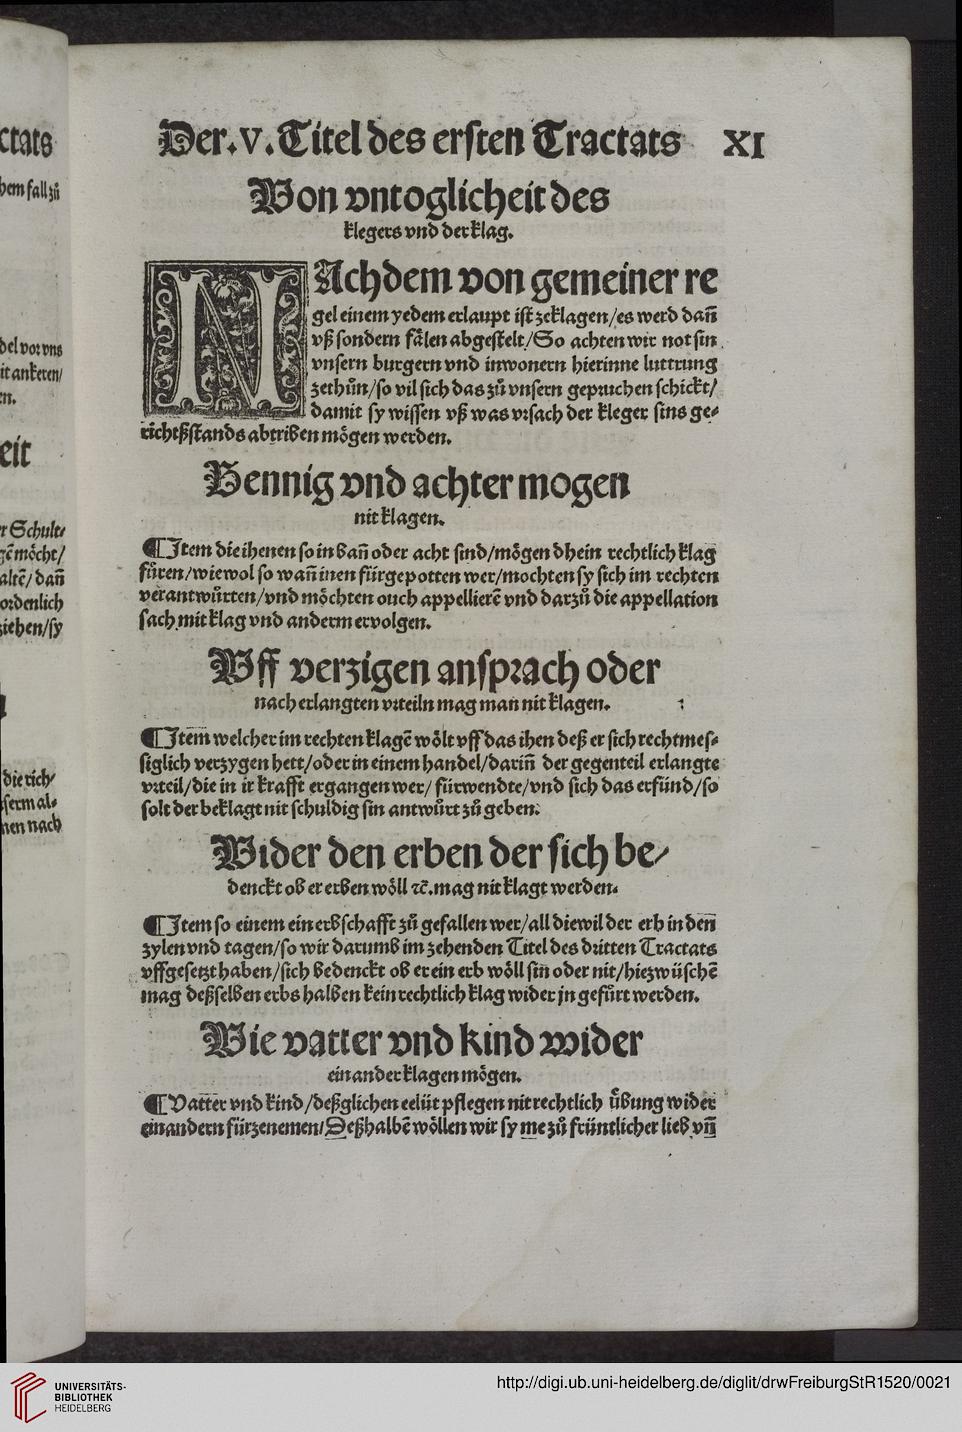 ctats
hem fall zů
del vor vns
it ankeren/
en.
eit
er Schult⸗
gē möcht/
altē/ dañ
ordenlich
ziehen/sy
die rich⸗
serm al⸗
nen nach
Der.V.Titel des ersten Tractats XI
Von vntoglicheit des
klegers vnd der klag.
NAchdem von gemeiner re
gel einem yedem erlaupt ist zeklagen/es werd dañ
vß sondern fälen abgestelt/So achten wir not sin
vnsern burgern vnd inwonern hierinne luttrung
zethůn/so vil sich das zů vnsern gepruchen schickt/
damit sy wissen vß was vrsach der kleger sins ge⸗
richtßstands abtriben mögen werden.
Bennig vnd achter mogen
nit klagen.
¶Item die ihenen so in bañ oder acht sind/mögen dhein rechtlich klag
fůren/wiewol so wañ inen fürgepotten wer/mochten sy sich im rechten
verantwůrten/vnd möchten ouch appellierē vnd darzů die appellation
sach mit klag vnd anderm ervolgen.
Vff verzigen ansprach oder
nach erlangten vrteiln mag man nit klagen.
¶Item welcher im rechten klagē wölt vff das ihen deß er sich rechtmes⸗
siglich verzygen hett/oder in einem handel/dariñ der gegenteil erlangte
vrteil/die in ir krafft ergangen wer/ fürwendte/vnd sich das erfünd/so
solt der beklagt nit schuldig sin antwůrt zů geben.
Wider den erben der sich be⸗
denckt ob er erben wöll ⁊c̄.mag nit klagt werden.
¶Item so einem ein erbschafft zů gefallen wer/all diewil der erb in den
zylen vnd tagen/so wir darumb im zehenden Titel des dritten Tractats
vffgesetzt haben/sich bedenckt ob er ein erb wöll sin oder nit/hiezwüschē
mag deßselben erbs halben kein rechtlich klag wider jn gefůrt werden.
Wie vatter vnd kind wider
einander klagen mögen.
¶Vatter vnd kind/deßglichen eelüt pflegen nit rechtlich ůbung wider
einandern fürzenemen/Deßhalbē wöllen wir sy me zů früntlicher lieb vñ
UNIVERSITÄTS-
BIBLIOTHEK
HEIDELBERG
http://digi.ub.uni-heidelberg.de/diglit/drwFreiburgStR1520/0021